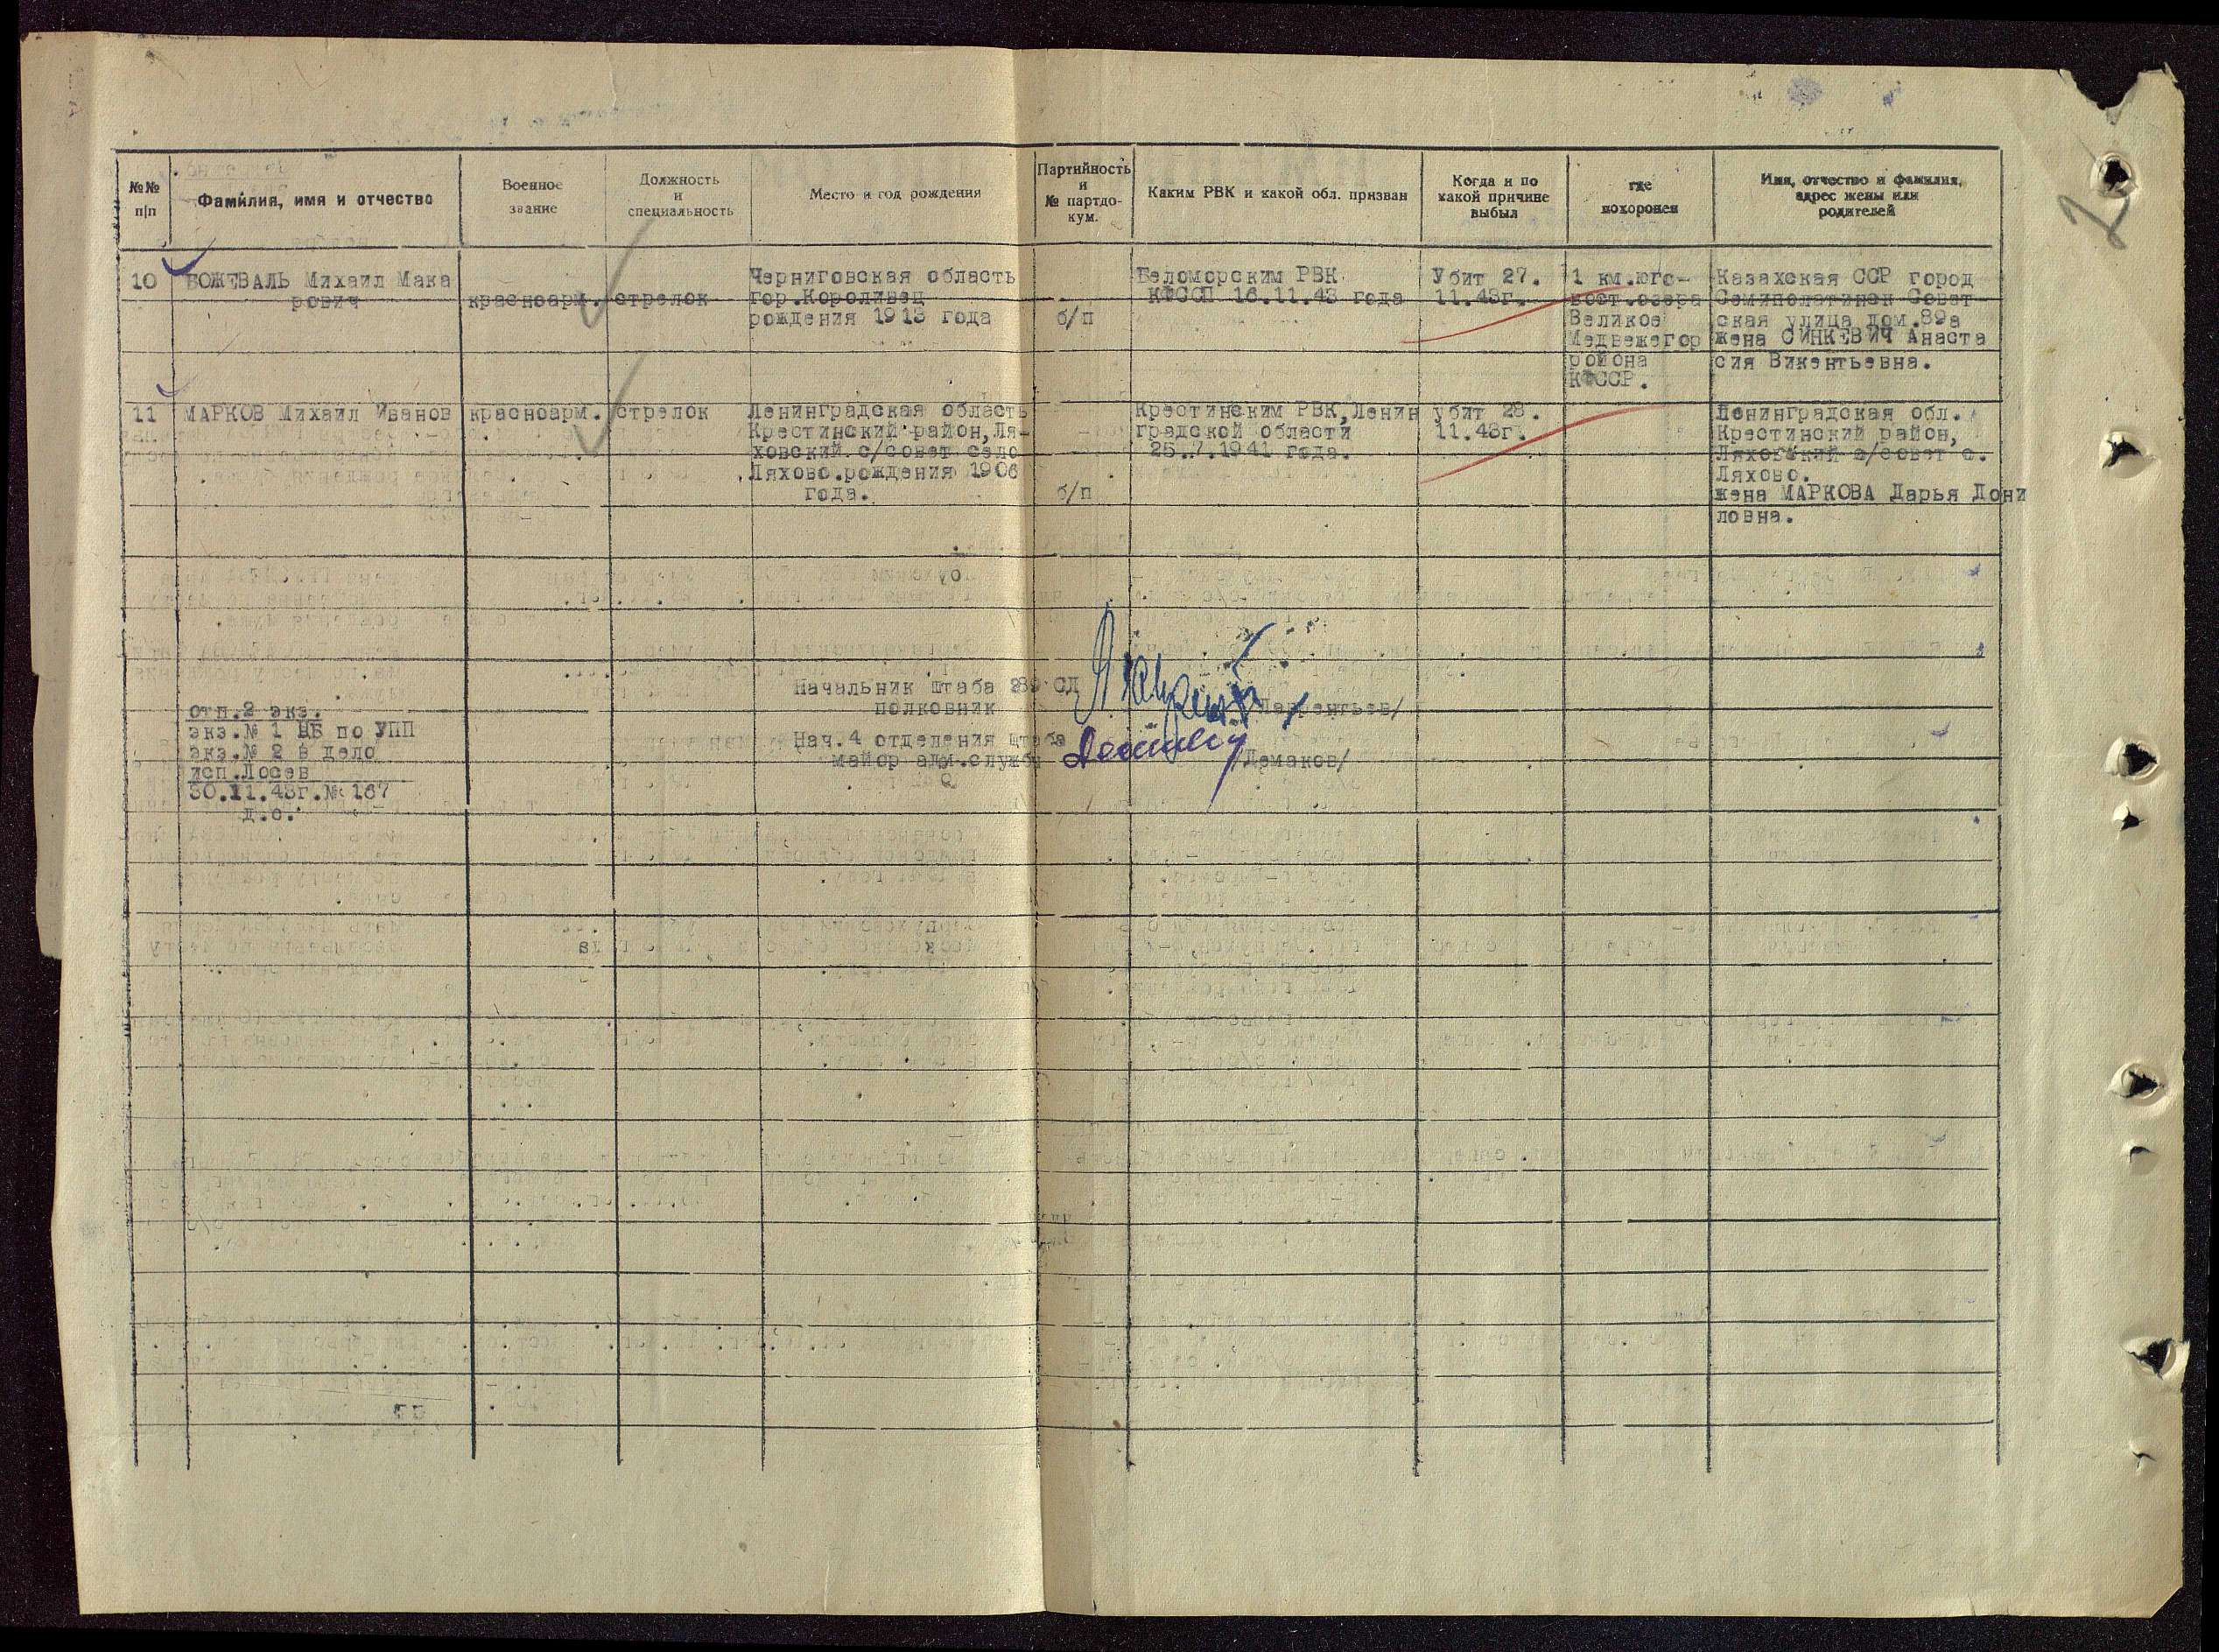 №№ п/п
Фамилия, имя и отчество
Военное звание
Должность и специальность
Место и год рождения
Партийность и № партдокум.
Каким РВК и какой обл. призван
Когда и по какой причине выбыл
где похоронен
Имя, отчество и фамилия, адрес жены или родителей
10
БОЖЕВАЛЬ Михаил Мака
рович
красноарм.
стрелок
Черниговская область
гор.Короливец
рождения 1913 года
б/п
Беломорским РВК
КФССП 16.11.43 года
Убит 27.
11.43г.
1 км.юго-
вост.озера
Великое
Медвежегор
района
КФССР.
Казахская ССР город
Семиполатинск Совет
ская улица дом.89а
жена СИНКЕВИЧ Анаста
сия Викентьевна.
11
МАРКОВ Михаил Иванов
красноарм.
стрелок
Ленинградская область
Крестинский район,Ля-
ховский с/совет село
Ляхово.рождения 1906
года.
б/п
Крестинским РВК,Ленин
градской области
25.7.1941 года.
убит 28.
11.43г.
Ленинградская обл.
Крестинский район,
Ляховский с/совет с.
Ляхово.
жена МАРКОВА Дарья Дони
ловна.
Начальник штаба 289 СД
полковник
/Лаврентьев/
Нач.4 отделения штаба
майор адм.службы
/Демаков/
отп.2 экз.
экз.№ 1 НБ по УПП
экз.№ 2 в дело
исп.Лосев
30.11.43г.№ 167
д.с.